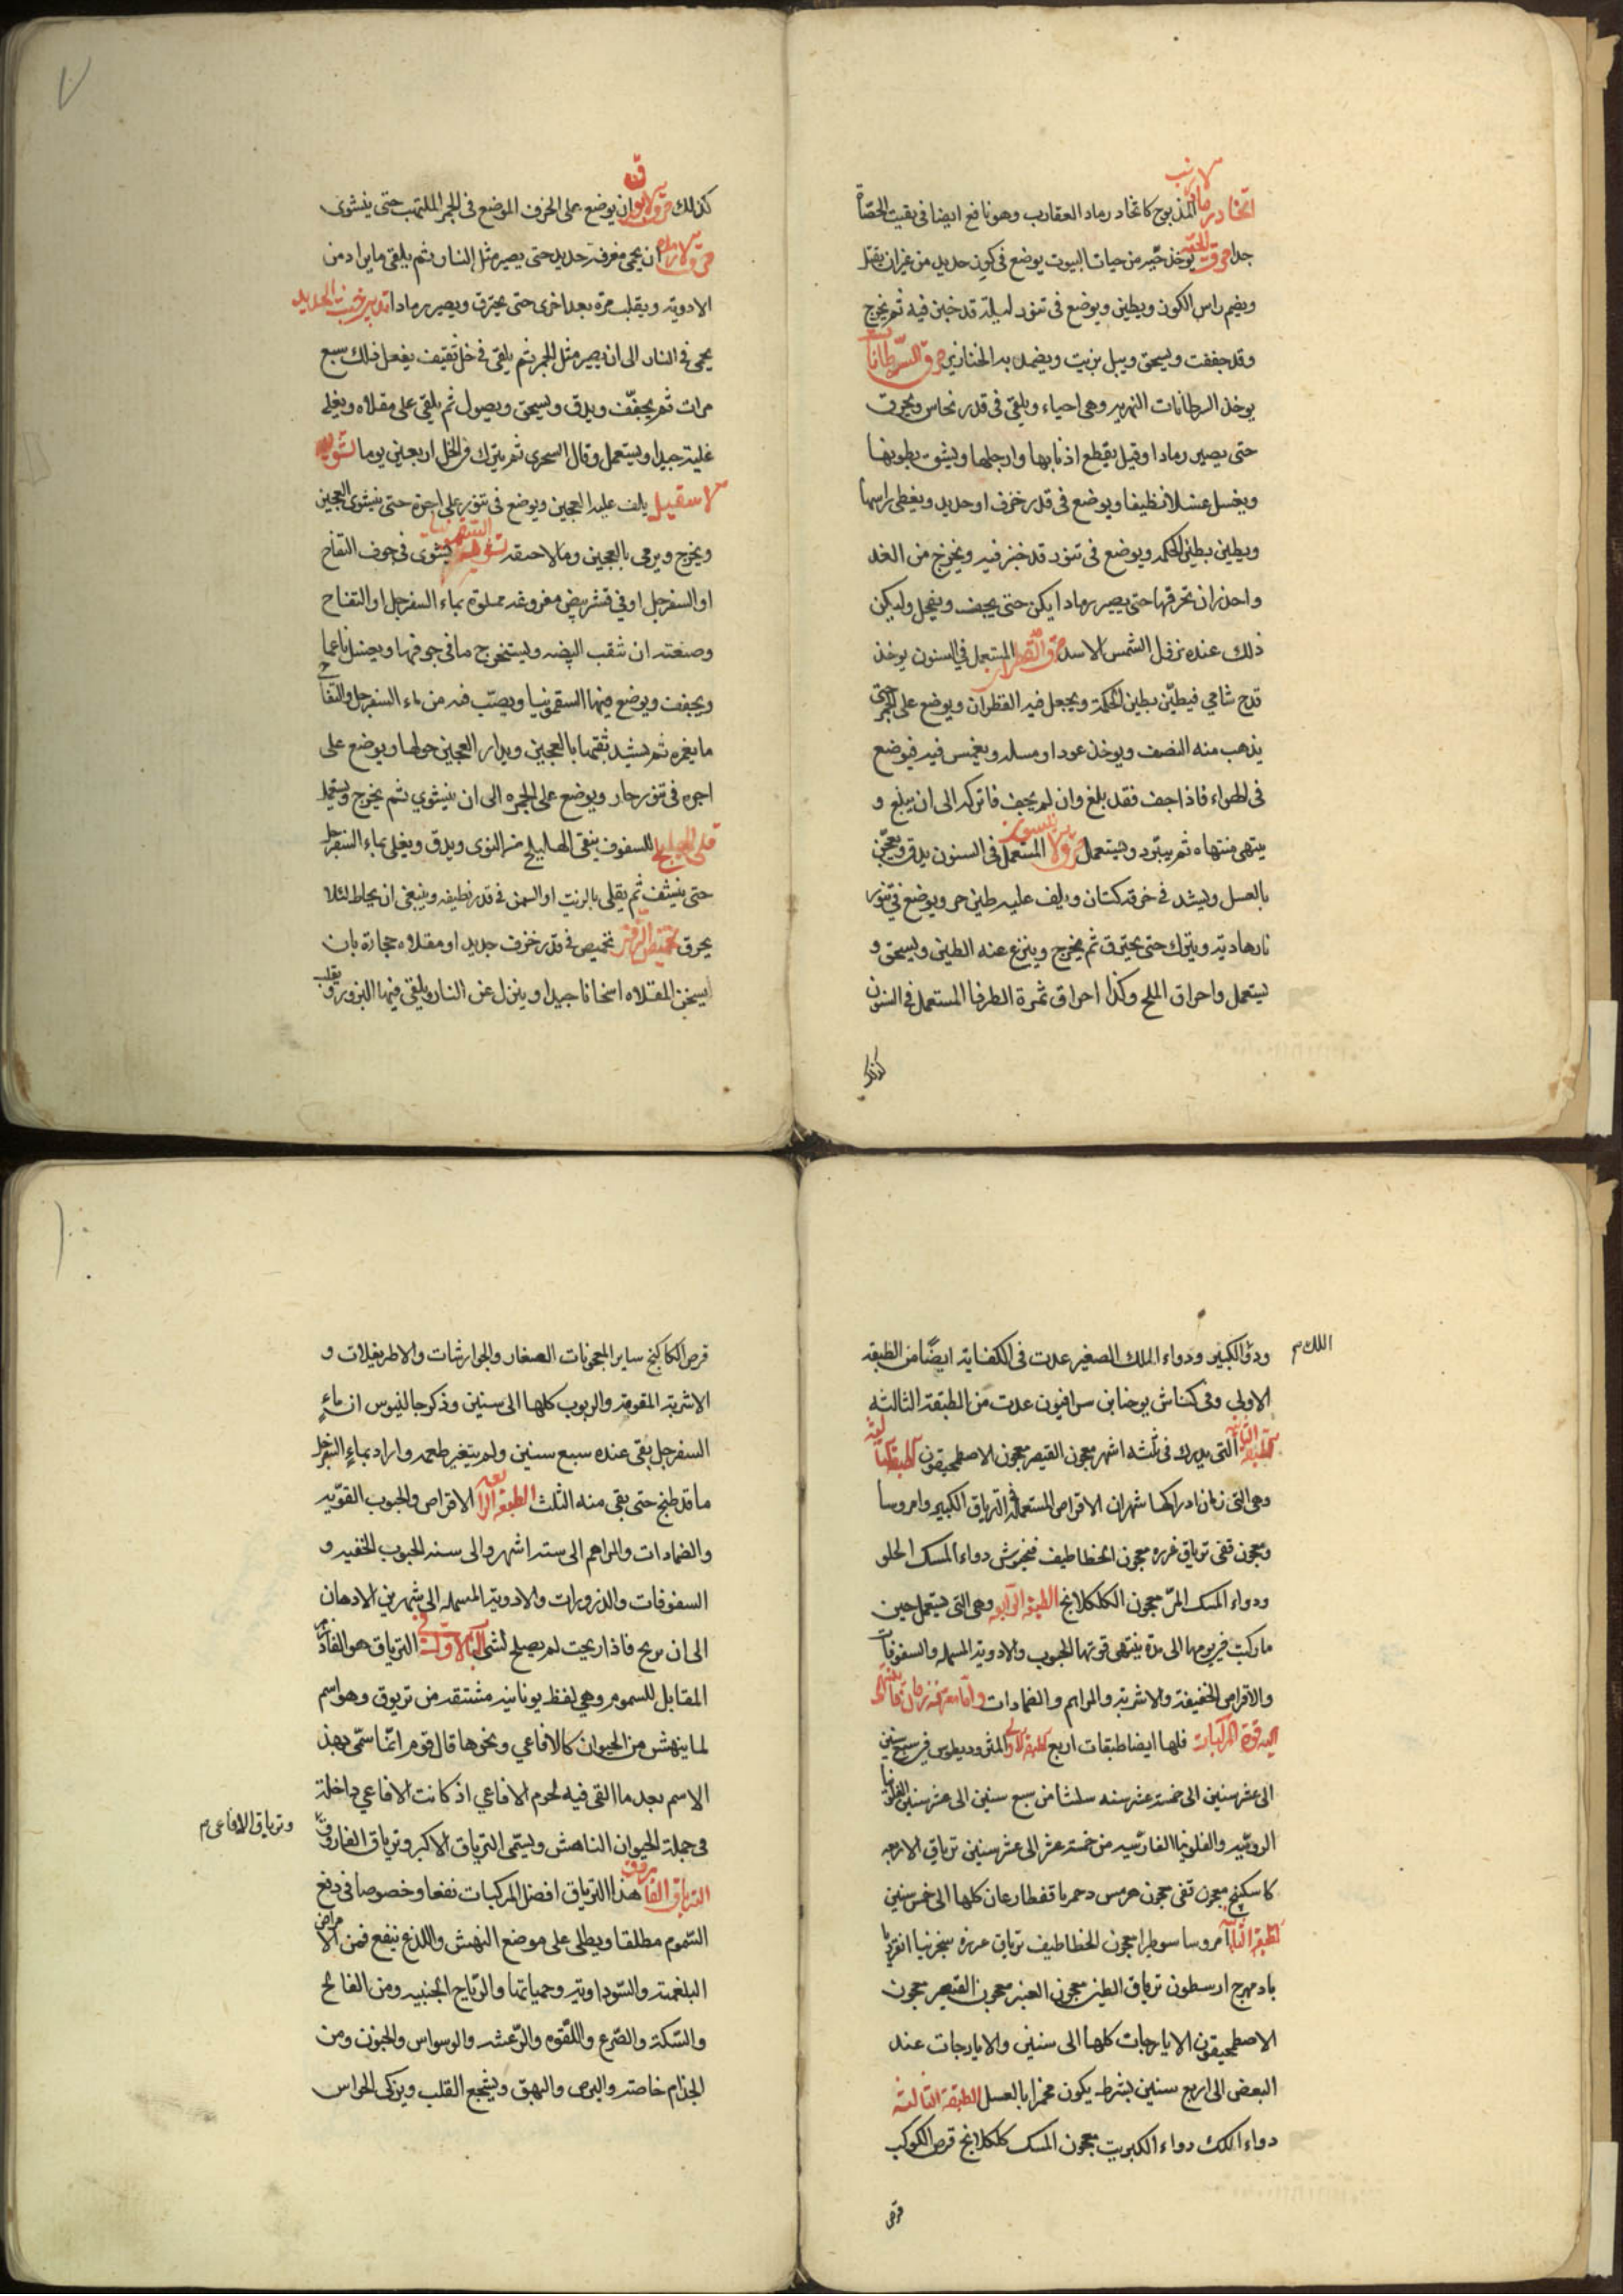 اتخاد رماد الارنب المذبوح كاتخاد رماد العقارب وهو نافع ايضا فى تفتيت الحصاة
جدا حرق الحية يوخذ حية من حيات البيوت يوضع فى كوز حديد من غير ان يقتل
ويضم راس الكوز ويطين ويوضع فى تنور ليلة قد خبز فيه ثم يخرج
وقد جففت ويسحق ويبل بزيت ويضمد به الخنازير حرق السرطانات
يوخذ السرطانات النهرية وهى احياء ويلقى فى قدر نحاس ويحرق
حتى يصير رمادا وقيل يقطع اذنابها وارجلها ويشق بطونها
ويغسل غسلا نظيفا ويوضع فى قدر خزف او حديد ويغطى راسها
ويطين بطين الحكمه ويوضع فى تنور قد خبز فيه ويخرج من الغد
واحذر ان تحرقها حتى يصير رمادا يكن حتى يجف وينحل وليكن
ذلك عند نزول الشمس الاسد حرق القطران المستعمل فى السنون يوخذ
قدح شامي فيطين بطين الحكمة ويجعل فيه القطران ويوضع على الجمر حتى
يذهب منه النصف ويوخذ عود او مسله ويغمس فيه فيوضع
فى الهواء فاذا جف فقد بلغ وان لم يجف فاتركه الى ان يبلغ و
ينتهى منتهاه ثم يبرد ويستعمل المستعمل فى السنون يدق ويعجن
بالعسل ويشد فى خرقة كتان ويلف عليه طين حر ويوضع فى تنور
نارها دية ويترك حتى يحترق ثم يخرج وينزع عنه الطين ويسحق و
يستعمل واحراق الملح وكذا احراق ثمرة الطرفا المستعمل فى السنون
كذلك
كذلك حرق الابواق ان يوضع على الخزف الموضع فى الجمر الملتهب حتى ينشوى
ان يحمى مغرفة حديد حتى يصير مثل النار ثم يلقى ما يراد من
الادوية ويقلب مرة بعد اخرى حتى يحترق ويصير رمادا تدبير خبث الحديد
يحمى فى النار الى ان يصير مثل الجمر ثم يلقى فى خل ثقيف يفعل ذلك سبع
مرات ثم يجفف ويدق ويسحق ويصول ثم يلقى على مقلاه ويغلى
غلية جيدا ويستعمل وقال السحرى ثم يترك فى الخل اربعين يوما تشوية
الاسقيل يلف عليه العجين ويوضع فى تنور على اجرة حتى ينشوى العجين
ويخرج ويرمى بالعجين وما لاصقه تشوية السقمونيا يشوى فى جوف التفاح
او السفرجل او فى قشر بيض مفروغه مملوة بماء السفرجل او التفاح
وصنعته ان تثقب البيضه ويستخرج ما فى جوفها ويغسل ناعما
ويجفف ويوضع فيها السقمونيا ويصب فيه من ماء السفرجل والتفاح
ما يغمره ثم يشد ثقبها بالعجين ويدار العجين حولها ويوضع على
اجره فى تنور حار ويوضع على الجمره الى ان ينشوي ثم يخرج ويستعمل
قلى الهليلج للسفوف ينقى الهليلج من النوى ويدق ويغلى بماء السفرجل
حتى ينشف ثم يقلى بالزيت او السمن فى قدر نظيفه وينبغى ان يحتاط لئلا
يحرق تحميص البزور تحميص فى قدر خزف جديد او مقلاه حجارة بان
يسخن المقلاه اسخانا جيدا وينزل عن النار ويلقى فيها البزور ويقلب
اللك م
ودوا الكبير ودواء الملك الصغير عدت فى الكفاية ايضا من الطبقه
الاولى وفى كناش يوحنا بن سرافيون عدت من الطبقة الثالثه
الطبقة الثانية التى يدرك فى ثلثه اشهر معجون القيصر معجون الاصطمحيقون الطبقة الثالثة
وهى التى زمان ادراكها شهران الاقراص المستعملة فى الترياق الكبير وامروسا
ومعجون قفى ترياق عزره معجون الخطاطيف فنجنوش دواء المسك الحلو
ودواء المسك المر معجون الكلكلانج الطبقه الرابعه وهى التى تستعمل حين
ما ركبت فى يومها الى مدة ينتهى قوتها الحبوب والادوية المسهله والسفوفات
والاقراص الخفيفة والاشربة والمراهم والضمادات واما معرفة زمان ما ينتهى
اليه قوة المركبات فلها ايضا طبقات اربع الطبقة الاولى المثروديطوس فى سبع سنين
الى عشر سنين الى خمسة عشر سنه سلثا من سبع سنين الى عشر سنين الفلونيا
الروميه والفلونيا الفارسيه من خمسة عشر الى عشر سنين ترياق الاربعه
كاسكبنج معجون قفى معجون هرمس دحمرثا قفطارغان كلها الى خمس سنين
الطبقة الثانية امروسا سوطرا معجون الخطاطيف ترياق عزره سجزنيا انقرديا
بادمهرج ارسطون ترياق الطين معجون العنبر معجون القيصر معجون
الاصطمحيقون الايارجات كلها الى سنين والايارجات عند
البعض الى اربع سنين بشرط يكون مخمرا بالعسل الطبقة الثالثة
دواء الكك دواء الكبريت معجون المسك كلكلانج قرص الكوكب
قرص
قرص الكاكنج ساير المعجونات الصغار والجوارشات والاطريفلات و
الاشربة المقومة والربوب كلها الى سنين وذكر جالينوس ان ماء
السفرجل بقى عنده سبع سنين ولم يتغير طعمه واراد بماء السفرجل
ما قد طبخ حتى بقى منه الثلث الطبقة الرابعه الاقراص والحبوب القوية
والضمادات والمراهم الى ستة اشهر والى سنه الحبوب الخفيه و
السفوفات والذرورات والادوية المسهله الى شهرين الادهان
الى ان يريح فاذا ريحت لم يصلح لشى الترياق هو الفادزهر
المقابل للسموم وهي لفظ يونانيه مشتقه من تريوق وهو اسم
لما ينهش من الحيوان كالافاعي ونحوها قال قوم انما سمى بهذ
الاسم بعد ما القى فيه لحوم الافاعي اذ كانت الافاعي داخلة
فى جملة الحيوان الناهش ويسمى الترياق الاكبر وترياق الفاروق
وترياق الافاعى م
الترياق الفاروق هذا الترياق افضل المركبات نفعا وخصوصا فى دفع
السموم مطلقا ويطلى على موضع النهش واللدغ ينفع فمن الامراض
البلغمية والسوداوية وحمياتها والرياح الخبيثه ومن الفالج
والسكتة والصرع واللقوه والرعشه والوسواس والجنون ومن
الجذام خاصة والبرص والبهق ويشجع القلب ويزكى الحواس